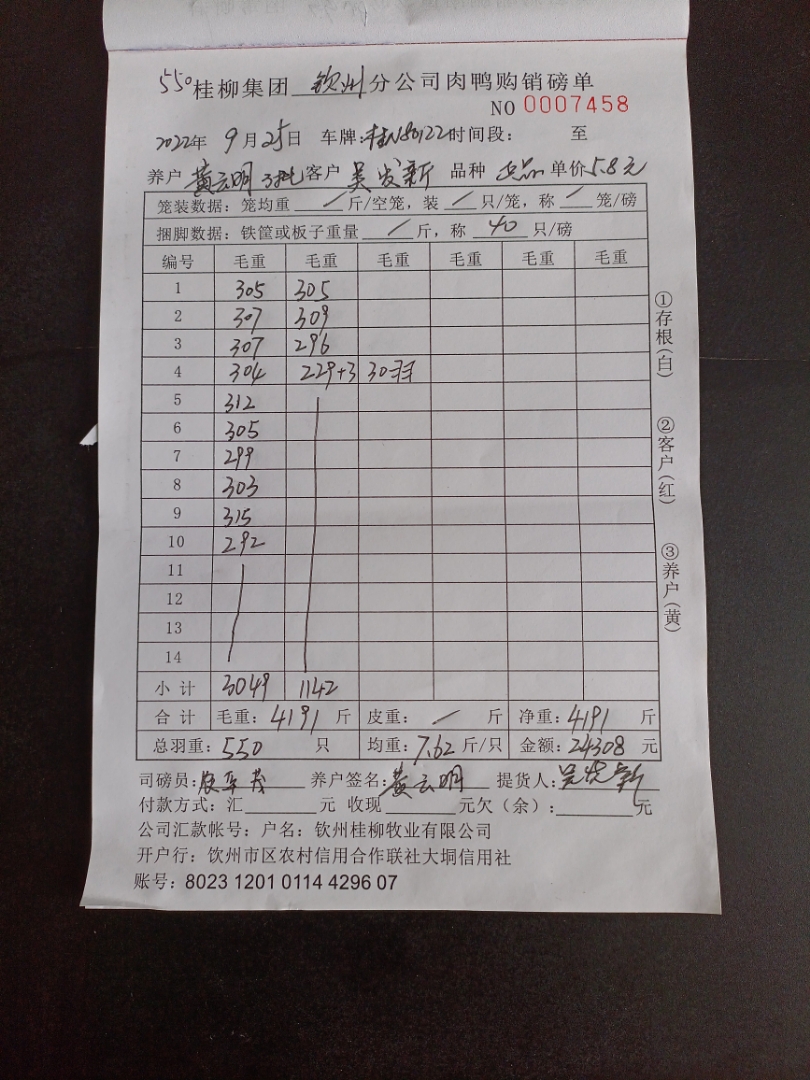 550 桂柳集团 钦州 分公司肉鸭购销磅单
NO 0007458
2022年 9月25日 车牌:桂N80122 时间段: 至
养户 黄云明 客户 吴发新 品种 正品 单价5.8元
笼装数据:笼均重 / 斤/空笼,装 / 只/笼,称 / 笼/磅
捆脚数据:铁筐或板子重量 / 斤,称 40 只/磅
编号 毛重 毛重 毛重 毛重 毛重 毛重
1 305 305
2 307 309
3 307 296
4 304 229+3 30羽
5 312
6 305
7 299
8 303
9 315
10 292
11
12
13
14
小计 3049 1142
合计 毛重:4191 斤 皮重: / 斤 净重:4191 斤
总羽重:550 只 均重:7.62 斤/只 金额:24308 元
司磅员: 养户签名:黄云明 提货人:吴发新
付款方式:汇 元 收现 元欠(余): 元
公司汇款帐号:户名:钦州桂柳牧业有限公司
开户行:饮州市区农村信用合作联社大垌信用社
账号:8023 1201 0114 4296 07
①存根(白)
②客户(红)
③养户(黄)